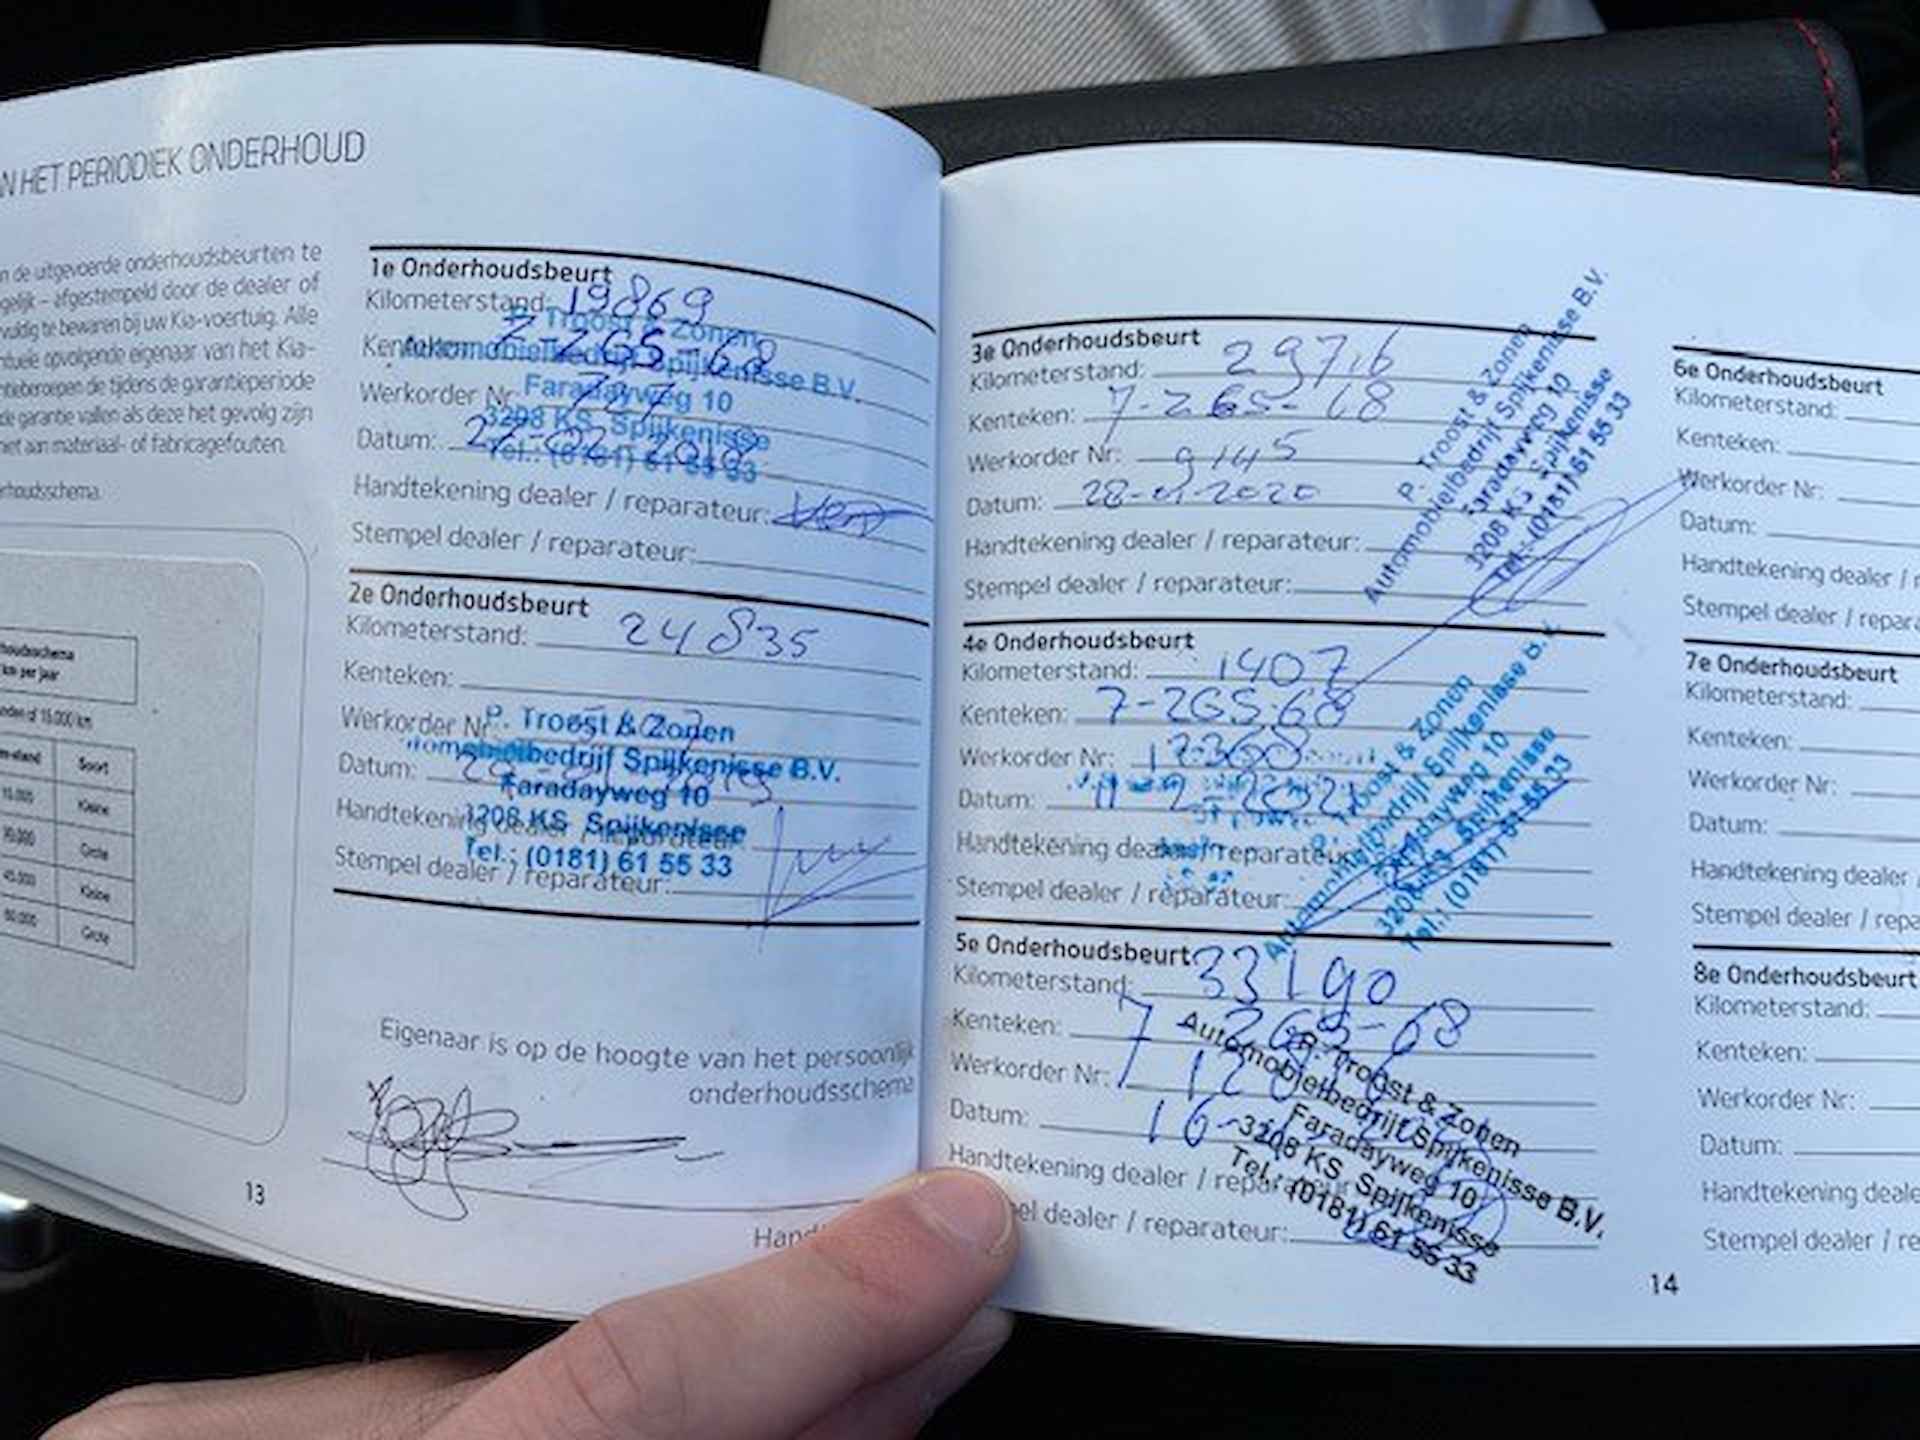 N HET PERIODIEK ONDERHOUD
n de uitgevoerde onderhoudsbeurten te
gelijk – afgestempeld door de dealer of
vuldig te bewaren bij uw Kia-voertuig. Alle
ntuele opvolgende eigenaar van het Kia-
nteberoepen die tijdens de garantieperiode
de garantie vallen als deze het gevolg zijn
niet aan materiaal- of fabricagefouten.
rhoudsschema.
houdsschema
km per jaar
15.000 km
Soort
15.000 Kleine
30.000 Grote
45.000 Kleine
60.000 Grote
1e Onderhoudsbeurt
Kilometerstand: 19869
Kenteken:
Werkorder Nr:
Datum:
Handtekening dealer / reparateur:
Stempel dealer / reparateur:
P. Troost & Zonen
Automobielbedrijf Spijkenisse B.V.
Faradayweg 10
3208 KS Spijkenisse
Tel.: (0181) 61 55 33
2e Onderhoudsbeurt
Kilometerstand: 24835
Kenteken:
Werkorder Nr:
Datum:
Handtekening dealer / reparateur:
Stempel dealer / reparateur:
P. Troost & Zonen
Automobielbedrijf Spijkenisse B.V.
Faradayweg 10
3208 KS Spijkenisse
Tel.: (0181) 61 55 33
Eigenaar is op de hoogte van het persoonlijk
onderhoudsschema
Hand
13
3e Onderhoudsbeurt
Kilometerstand: 29716
Kenteken: 7-ZGS-68
Werkorder Nr: 9145
Datum: 28-01-2020
Handtekening dealer / reparateur:
Stempel dealer / reparateur:
P. Troost & Zonen
Automobielbedrijf Spijkenisse B.V.
Faradayweg 10
3208 KS Spijkenisse
Tel.: (0181) 61 55 33
4e Onderhoudsbeurt
Kilometerstand: 1407
Kenteken: 7-ZGS-68
Werkorder Nr:
Datum:
Handtekening dealer / reparateur:
Stempel dealer / reparateur:
P. Troost & Zonen
Automobielbedrijf Spijkenisse B.V.
Faradayweg 10
3208 KS Spijkenisse
Tel.: (0181) 61 55 33
5e Onderhoudsbeurt
Kilometerstand: 33190
Kenteken: 7 ZGS-68
Werkorder Nr:
Datum:
Handtekening dealer / reparateur:
pel dealer / reparateur:
P. Troost & Zonen
Automobielbedrijf Spijkenisse B.V.
Faradayweg 10
3208 KS Spijkenisse
Tel.: (0181) 61 55 33
14
6e Onderhoudsbeurt
Kilometerstand:
Kenteken:
Werkorder Nr:
Datum:
Handtekening dealer / r
Stempel dealer / repara
7e Onderhoudsbeurt
Kilometerstand:
Kenteken:
Werkorder Nr:
Datum:
Handtekening dealer /
Stempel dealer / repa
8e Onderhoudsbeurt
Kilometerstand:
Kenteken:
Werkorder Nr:
Datum:
Handtekening deale
Stempel dealer / re